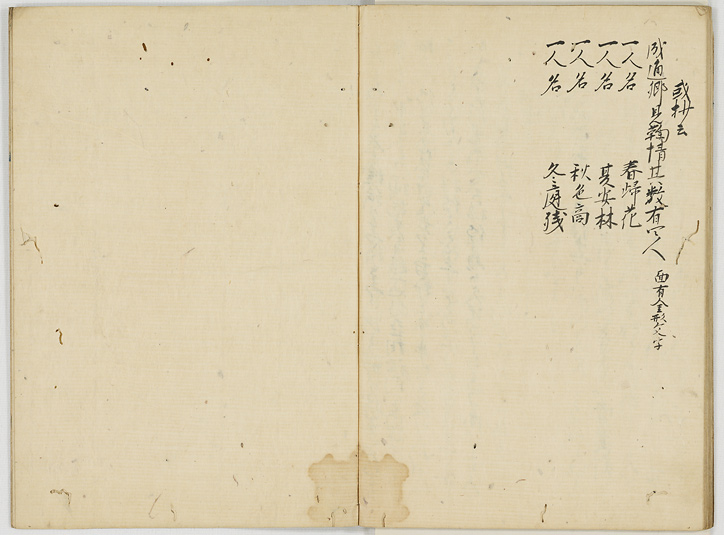 或抄云
成通卿見鞠情其数有四人 面有金形文字
一人名 春帰花
一人名 夏安林
一人名 秋色高
一人名 冬庭残